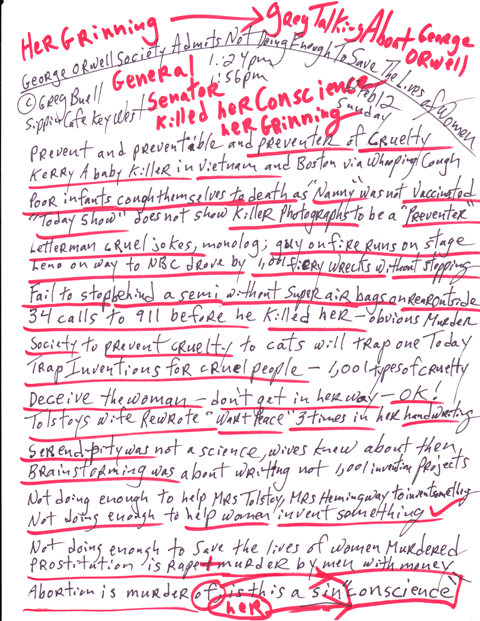 Her Grinning → Greg Talking About George Orwell
George Orwell Society Admits Not Doing Enough To Save The Lives of Women
© Greg Buell
Sippin Cafe Key West
General
Senator
1:24pm
1:56pm
Killed her Conscience
her Grinning
Feb 12
Sunday
Prevent and preventable and preventer of Cruelty
Kerry A baby killer in Vietnam and Boston via Whooping Cough
Poor infants cough themselves to death as "Nanny" was not vaccinated
"Today Show" does not show Killer Photographs to be a "Preventer"
Letterman cruel jokes, monolog; guy on fire runs on stage
Leno on way to NBC drove by 1,001 fiery wrecks without stopping
Fail to stop behind a semi without Super air bags on rear outside
34 calls to 911 before he killed her – obvious Murder
Society to prevent cruelty to cats will trap one Today
Trap Inventions for cruel people – 1,001 types of cruelty
Deceive the woman – don't get in her way – OK!
Tolstoys wife Rewrote "War & Peace" 3 times in her handwriting
Serendipity was not a science, wives knew about then
Brainstorming was about writing not 1,001 invention projects
Not doing enough to help Mrs Tolstoy, Mrs Hemingway to invent something
Not doing enough to help women invent something ✓
Not doing enough to Save the lives of Women Murdered
Prostitution is Rape + murder by men with money
Abortion is murder of, is this a sin "Conscience"
her